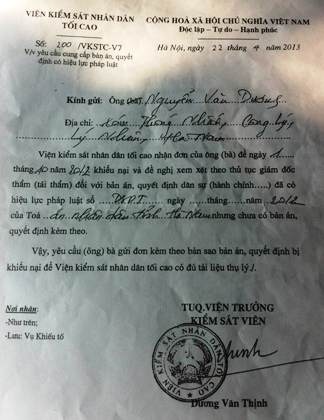 VIỆN KIỂM SÁT NHÂN DÂN
TỐI CAO
CỘNG HOÀ XÃ HỘI CHỦ NGHĨA VIỆT NAM
Độc lập - Tự do - Hạnh phúc
Số: 200 /VKSTC-V7
V/v yêu cầu cung cấp bản án, quyết
định có hiệu lực pháp luật
Hà Nội, ngày 22 tháng 4 năm 2013
Kính gửi: Ông Nguyễn Văn
Địa chỉ: Thống Nhất
Lý Nhân, Hà Nam
Viện kiểm sát nhân dân tối cao nhận đơn của ông (bà) đề ngày 1
tháng 10 năm 2012 khiếu nại và đề nghị xem xét theo thủ tục giám đốc
thẩm (tái thẩm) đối với bản án, quyết định dân sự (hành chính....) đã có
hiệu lực pháp luật số ngày......tháng......năm 2012
của Toà án nhân dân tỉnh Hà Nam nhưng chưa có bản án,
quyết định kèm theo.
Vậy, yêu cầu (ông) bà gửi đơn kèm theo bản sao bản án, quyết định bị
khiếu nại để Viện kiểm sát nhân dân tối cao có đủ tài liệu thụ lý./.
Nơi nhận:
-Như trên;
-Lưu: Vụ Khiếu tố
TUQ.VIỆN TRƯỞNG
KIỂM SÁT VIÊN
VIỆN KIỂM SÁT NHÂN DÂN TỐI CAO
Dương Văn Thịnh